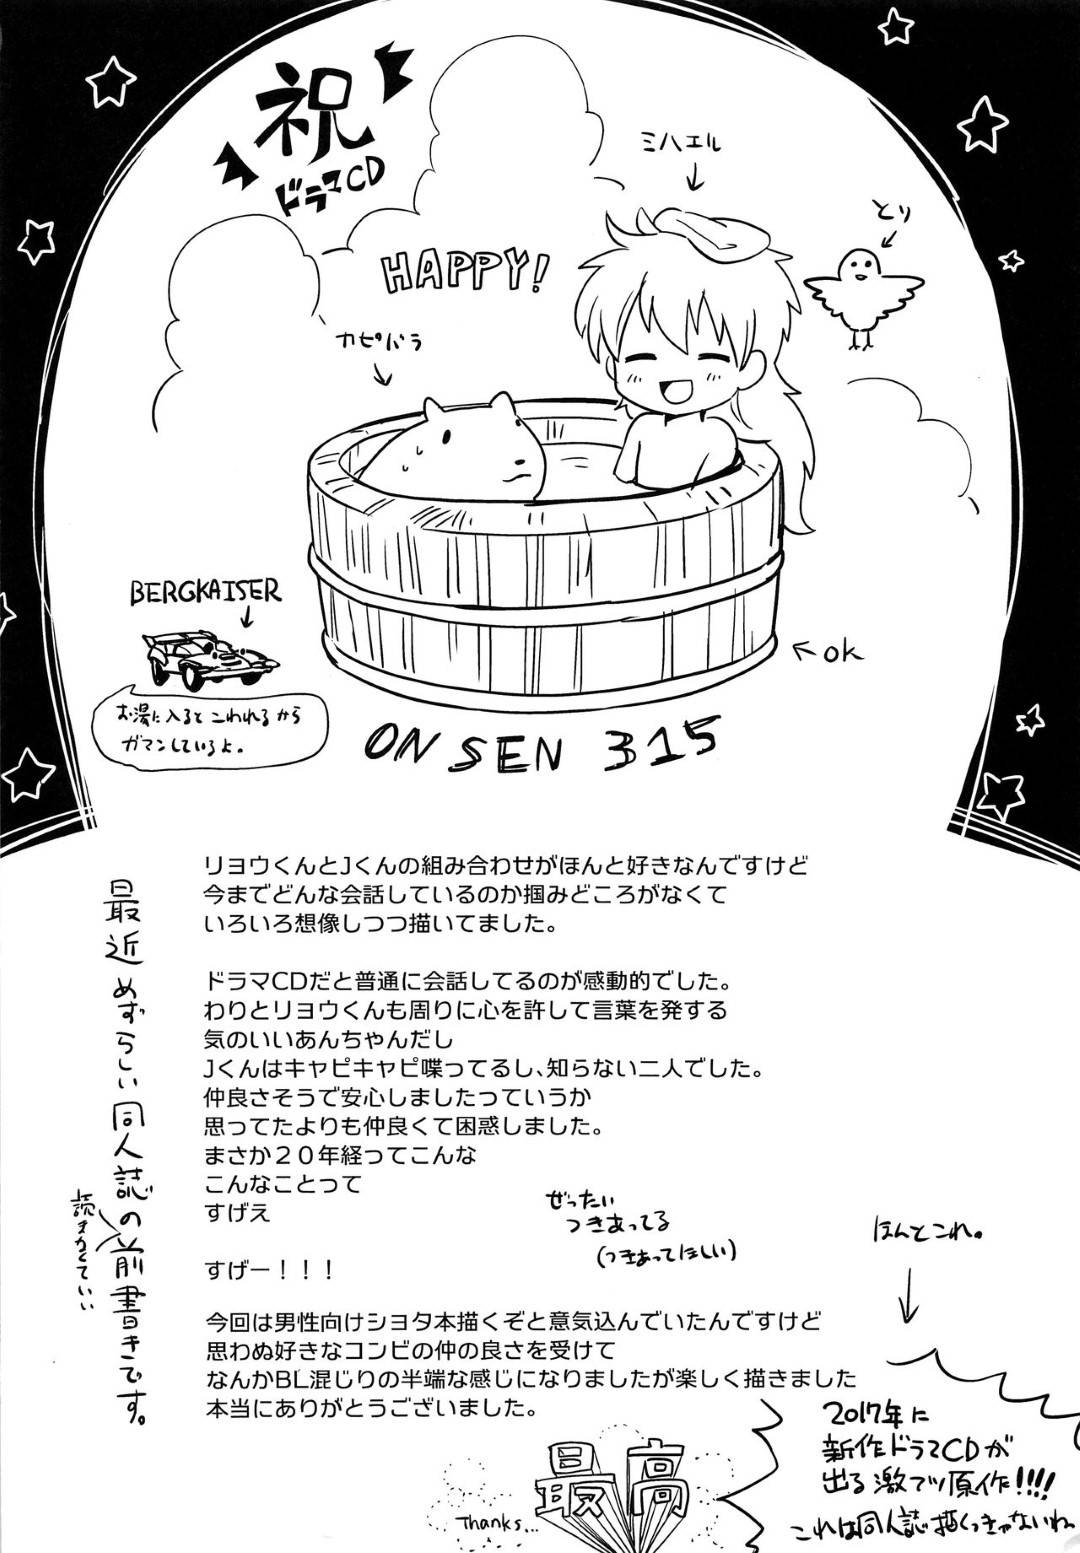 祝
ドラマCD
HAPPY!
ミハエル
とり
カピバラ
BERGKAISER
お湯に入るとこわれるから
ガマンしているよ。
OK
ONSEN 315
最近めずらしい同人誌の前書きです。
読まなくていい
リヨウくんとJくんの組み合わせがほんと好きなんですけど
今までどんな会話しているのか掴みどころがなくて
いろいろ想像しつつ描いてました。
ドラマCDだと普通に会話してるのが感動的でした。
わりとリヨウくんも周りに心を許して言葉を発する
気のいいあんちゃんだし
Jくんはキャピキャピ喋ってるし、知らない二人でした。
仲良さそうで安心しましたっていうか
思ってたよりも仲良くて困惑しました。
まさか20年経ってこんな
こんなことって
すげえ
すげー！！！
ぜったい
つきあってる
(つきあってほしい)
今回は男性向けショタ本描くぞと意気込んでいたんですけど
思わぬ好きなコンビの仲の良さを受けて
なんかBL混じりの半端な感じになりましたが楽しく描きました
本当にありがとうございました。
ほんとこれ。
2017年に
新作ドラマCDが
出る激アツ原作!!!!
これは同人誌描くっきゃないわ。
最高
Thanks...